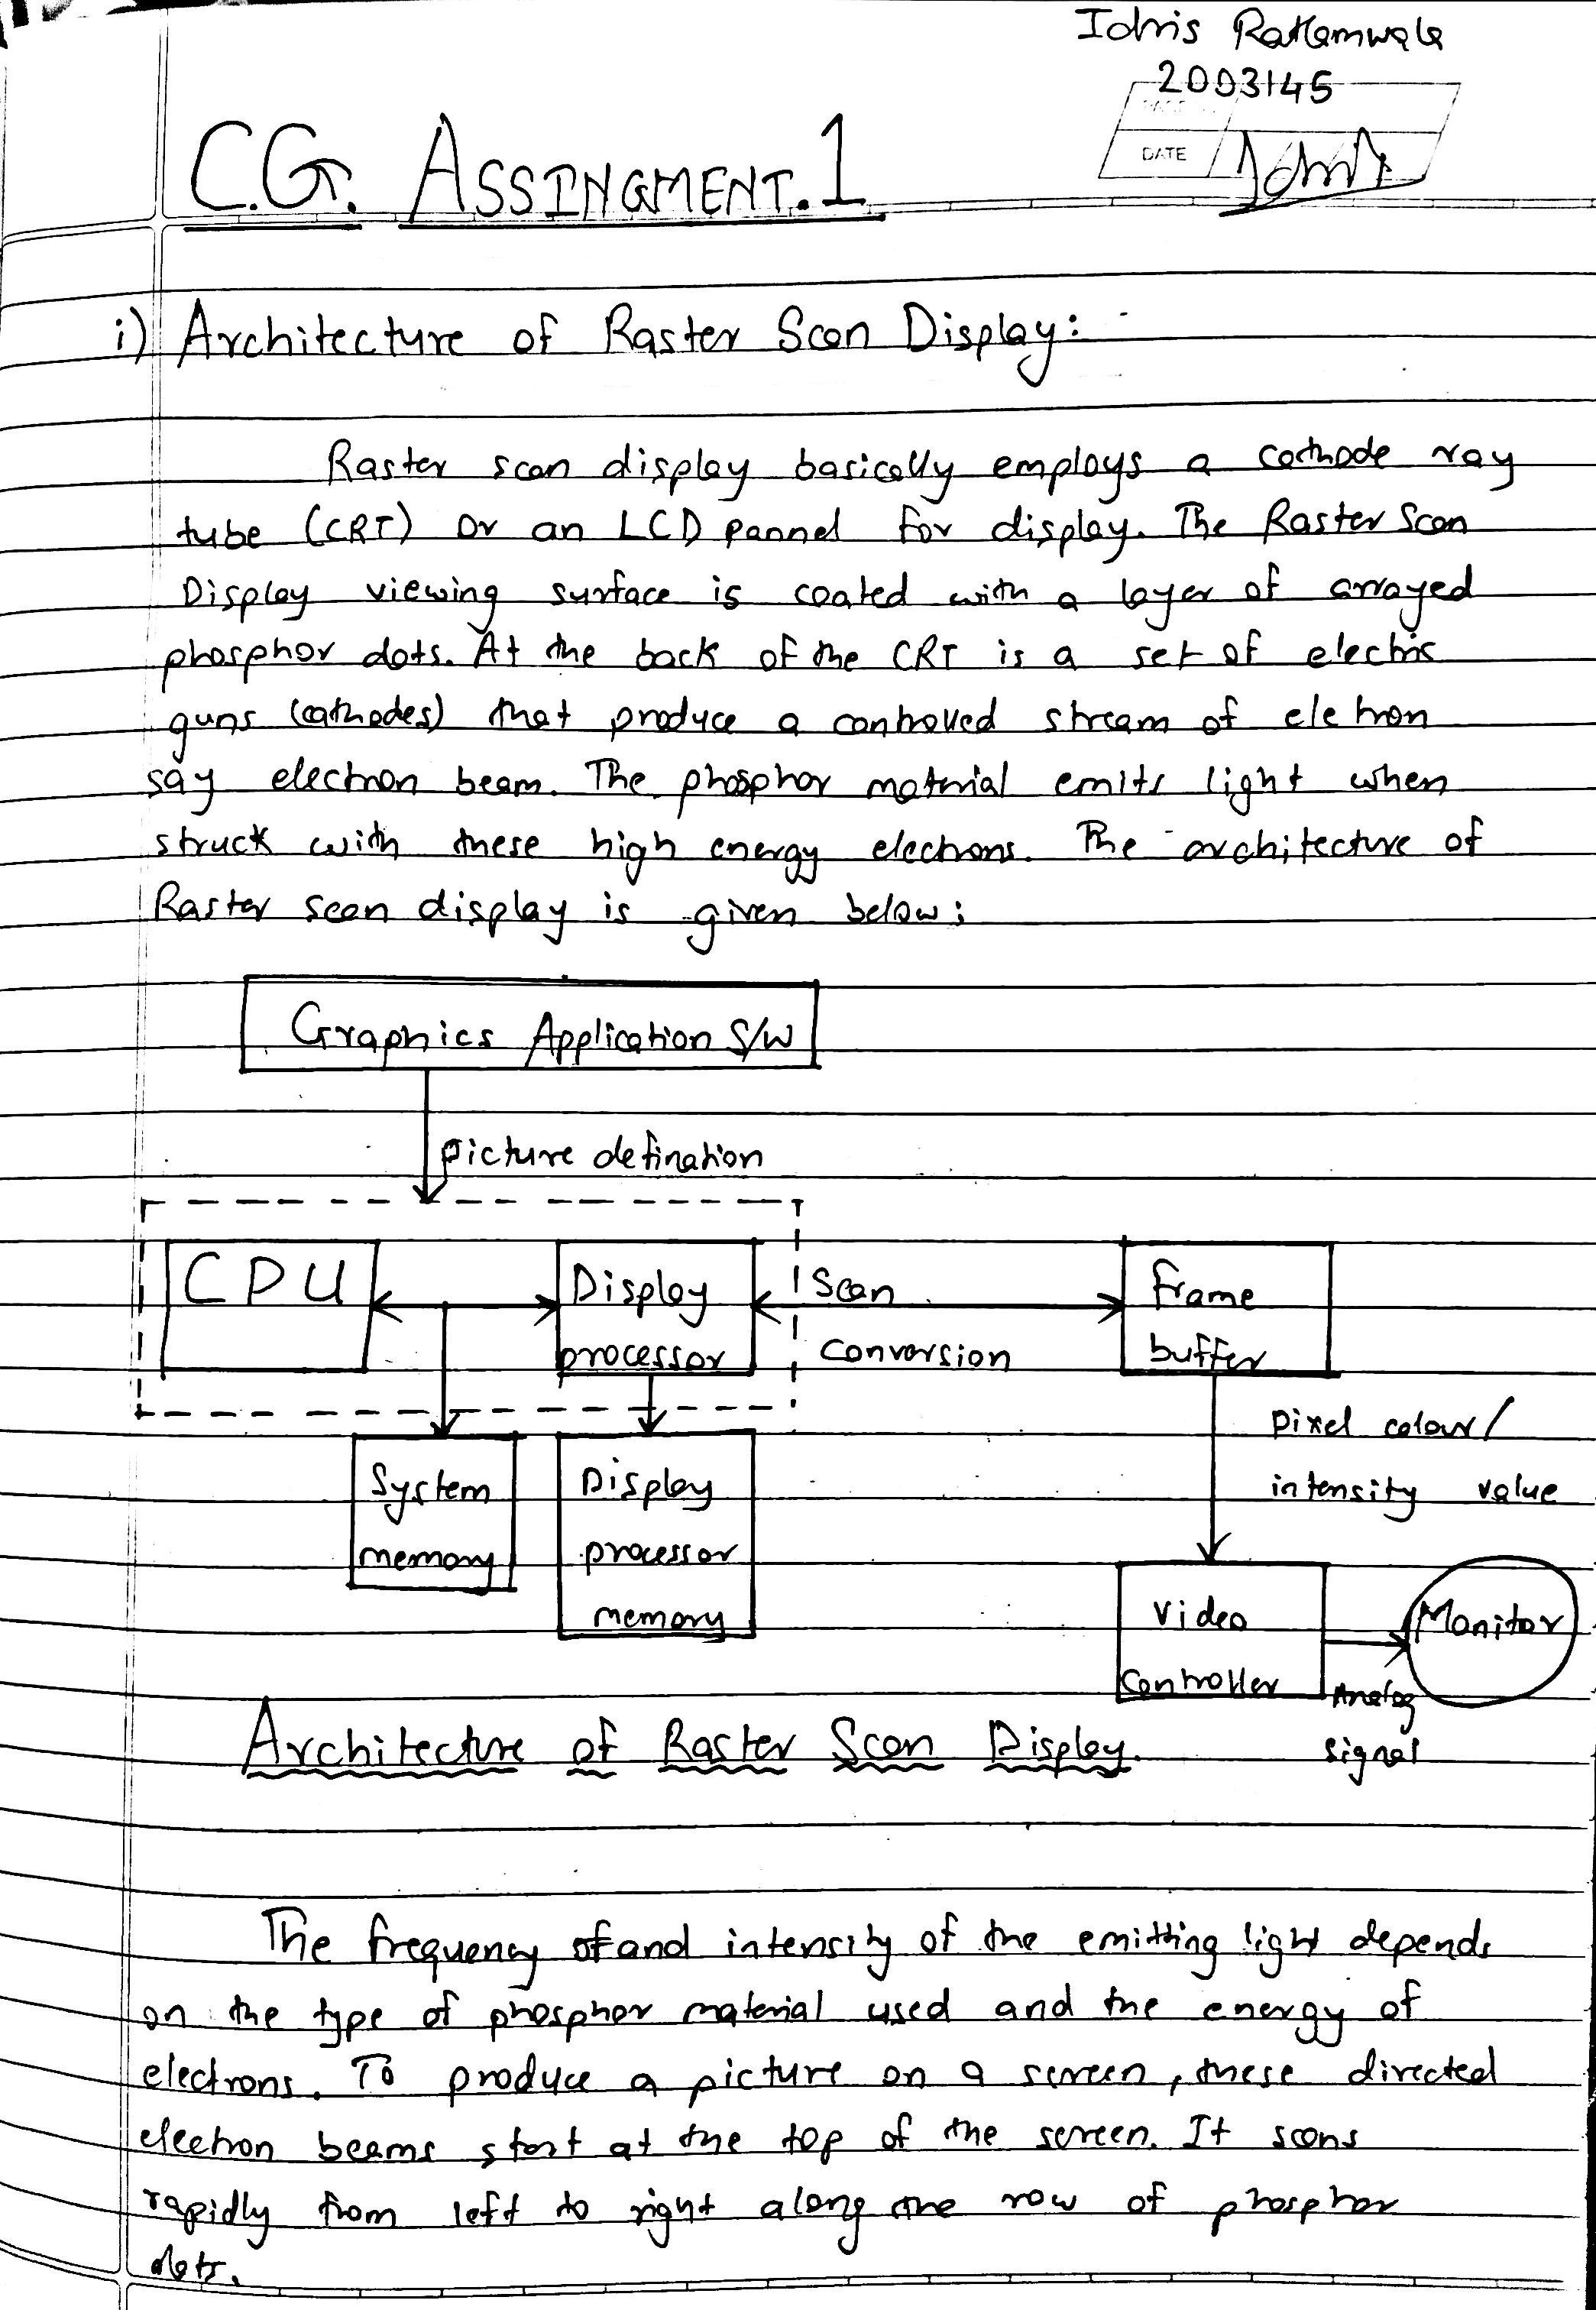 Idris Ratlamwala
2003145
DATE
C.G. ASSINGMENT.1
i) Architecture of Raster Scan Display:
Raster scan display basically employs a cathode ray
tube (CRT) or an LCD pannel for display. The Raster Scan
Display viewing surface is coated with a layer of arrayed
phosphor dots. At the back of the CRT is a set of electric
guns (cathodes) that produce a controlled stream of eletron
say electron beam. The phosphor material emits light when
struck with these high energy electrons. The architecture of
Raster scan display is given below:
Graphics Application S/W
picture defination
CPU
Display
processor
Scan
conversion
Frame
buffer
System
memory
Display
processor
memory
pixel colour/
intensity value
Video
Controller
Analog
signal
Monitor
Architecture of Raster Scan Display.
The frequency and intensity of the emitting light depends
on the type of phosphor material used and the energy of
electrons. To produce a picture on a screen, these directed
electron beams start at the top of the screen. It scans
rapidly from left to right along the row of phosphor
dots.